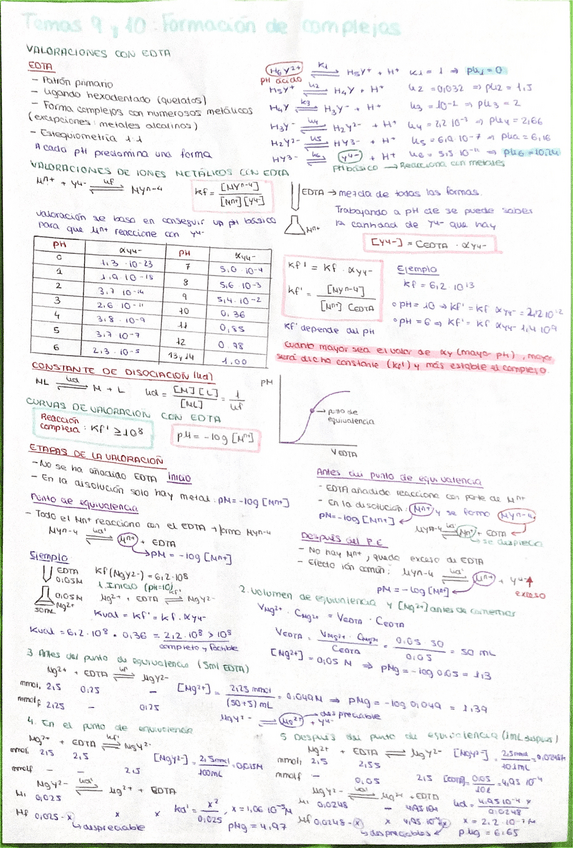 Temas 9 y 10: Formación de complejos
VALORACIONES CON EDTA
EDTA
- Patrón primario
- Ligando hexadentado (quelatos)
- Forma complejos con numerosos metálicos
(excepciones: metales alcalinos)
- Estequiometría 1:1
A cada pH predomina una forma
H6Y2+ ⇌ H5Y+ + H+ K1 = 1 ⇒ pK1 = 0
pH ácido
H5Y+ ⇌ H4Y + H+ K2 = 0,032 ⇒ pK2 = 1,5
H4Y ⇌ H3Y- + H+ K3 = 10-2 ⇒ pK3 = 2
H3Y- ⇌ H2Y2- + H+ K4 = 2,2·10-3 ⇒ pK4 = 2,66
H2Y2- ⇌ HY3- + H+
HY3- ⇌ Y4- + H+
pH básico → Reacciona con metales
VALORACIONES DE IONES METÁLICOS CON EDTA
Mn+ + Y4- ⇌ MYn-4
Kf = [MYn-4] / [Mn+][Y4-]
EDTA → mezcla de todas las formas.
Mn+
Trabajando a pH cte se puede saber
la cantidad de Y4- que hay
[Y4-] = CEDTA · αY4-
Valoración se basa en conseguir un pH básico
para que Mn+ reaccione con Y4-
pH αY4- pH αY4-
0 1,3·10-23 7 5,0·10-4
1 1,9·10-18 8 5,6·10-3
2 3,7·10-14 9 5,4·10-2
3 2,6·10-11 10 0,36
4 3,8·10-9 11 0,85
5 3,7·10-7 12 0,98
6 2,3·10-5 13,14 1,00
Kf' = Kf · αY4-
Kf' = [MYn-4] / [Mn+] CEDTA
Kf' depende del pH
Ejemplo
Kf = 6,2·1013
○ pH = 10 → Kf' = Kf αY4-
○ pH = 6 ⇒ Kf' = Kf αY4-
Cuanto mayor sea el valor de αY (mayor pH), mayor
será dicha constante (Kf') y más estable el complejo
CONSTANTE DE DISOCIACIÓN (Kd)
ML ⇌ M + L Kd = [M][L] / [ML] = 1 / Kf
CURVAS DE VALORACIÓN CON EDTA
Reacción
completa: Kf' ≥ 108
pM = -log [Mn+]
pM
punto de
equivalencia
V EDTA
ETAPAS DE LA VALORACIÓN
- No se ha añadido EDTA Inicio
- En la disolución solo hay metal: pM = -log [Mn+]
Punto de equivalencia
- Todo el Mn+ reacciono con el EDTA → formo MYn-4
MYn-4 ⇌ Mn+ + EDTA
→ pM = -log [Mn+]
Antes del punto de equivalencia
- EDTA añadido reacciona con parte de Mn+
- En la disolución: Mn+ y se formo MYn-4
pM = -log [Mn+]
MYn-4 ⇌ Mn+ + EDTA
→ se desprecia
Después del P.E
- No hay Mn+, quedo exceso de EDTA
- Efecto ión común: MYn-4 ⇌ Mn+ + Y4-
pM = -log [Mn+] exceso
Ejemplo
EDTA
0,05M
0,05M
Mg2+
50mL
Kf (MgY2-) = 6,2·108
1. Inicio (pH=10)
Mg2+ + EDTA ⇌ MgY2-
Kval = Kf' = Kf · αY4-
Kval = 6,2·108 · 0,36 = 2,2·108 > 108
completa y factible
2. Volumen de equivalencia y [Mg2+] antes de comenzar
VMg2+ · CMg2+ = VEDTA · CEDTA
VEDTA = VMg2+ · CMg2+ / CEDTA = 0,05·50 / 0,05 = 50 mL
[Mg2+] = 0,05 M ⇒ pMg = -log 0,05 = 1,3
3. Antes del punto de equivalencia (5ml EDTA)
Mg2+ + EDTA ⇌ MgY2-
mmoli 2,5 0,25 -
mmolf 2,25 - 0,25
[Mg2+] = 2,25 mmol / (50+5) mL = 0,041M ⇒ pMg = -log 0,041 = 1,39
MgY2- ⇌ Mg2+ + Y4-
despreciable
4. En el punto de equivalencia
Mg2+ + EDTA ⇌ MgY2-
mmoli 2,5 2,5 -
mmolf - - 2,5
[MgY2-] = 2,5mmol / 100mL = 0,025M
MgY2- ⇌ Mg2+ + EDTA
Mi 0,025
Mf 0,025-x x x
→ despreciable
Kd' = x2 / 0,025, x = 1,06·10-5M
pMg = 4,97
5. Después del punto de equivalencia
Mg2+ + EDTA ⇌ MgY2-
mmoli 2,5 2,55
mmolf - 0,05 2,5
MgY2- ⇌ Mg2+ + EDTA
Mi 0,0248
Mf 0,0248-x
→ despreciables
x = 2,2·10-7M
pMg = 6,65